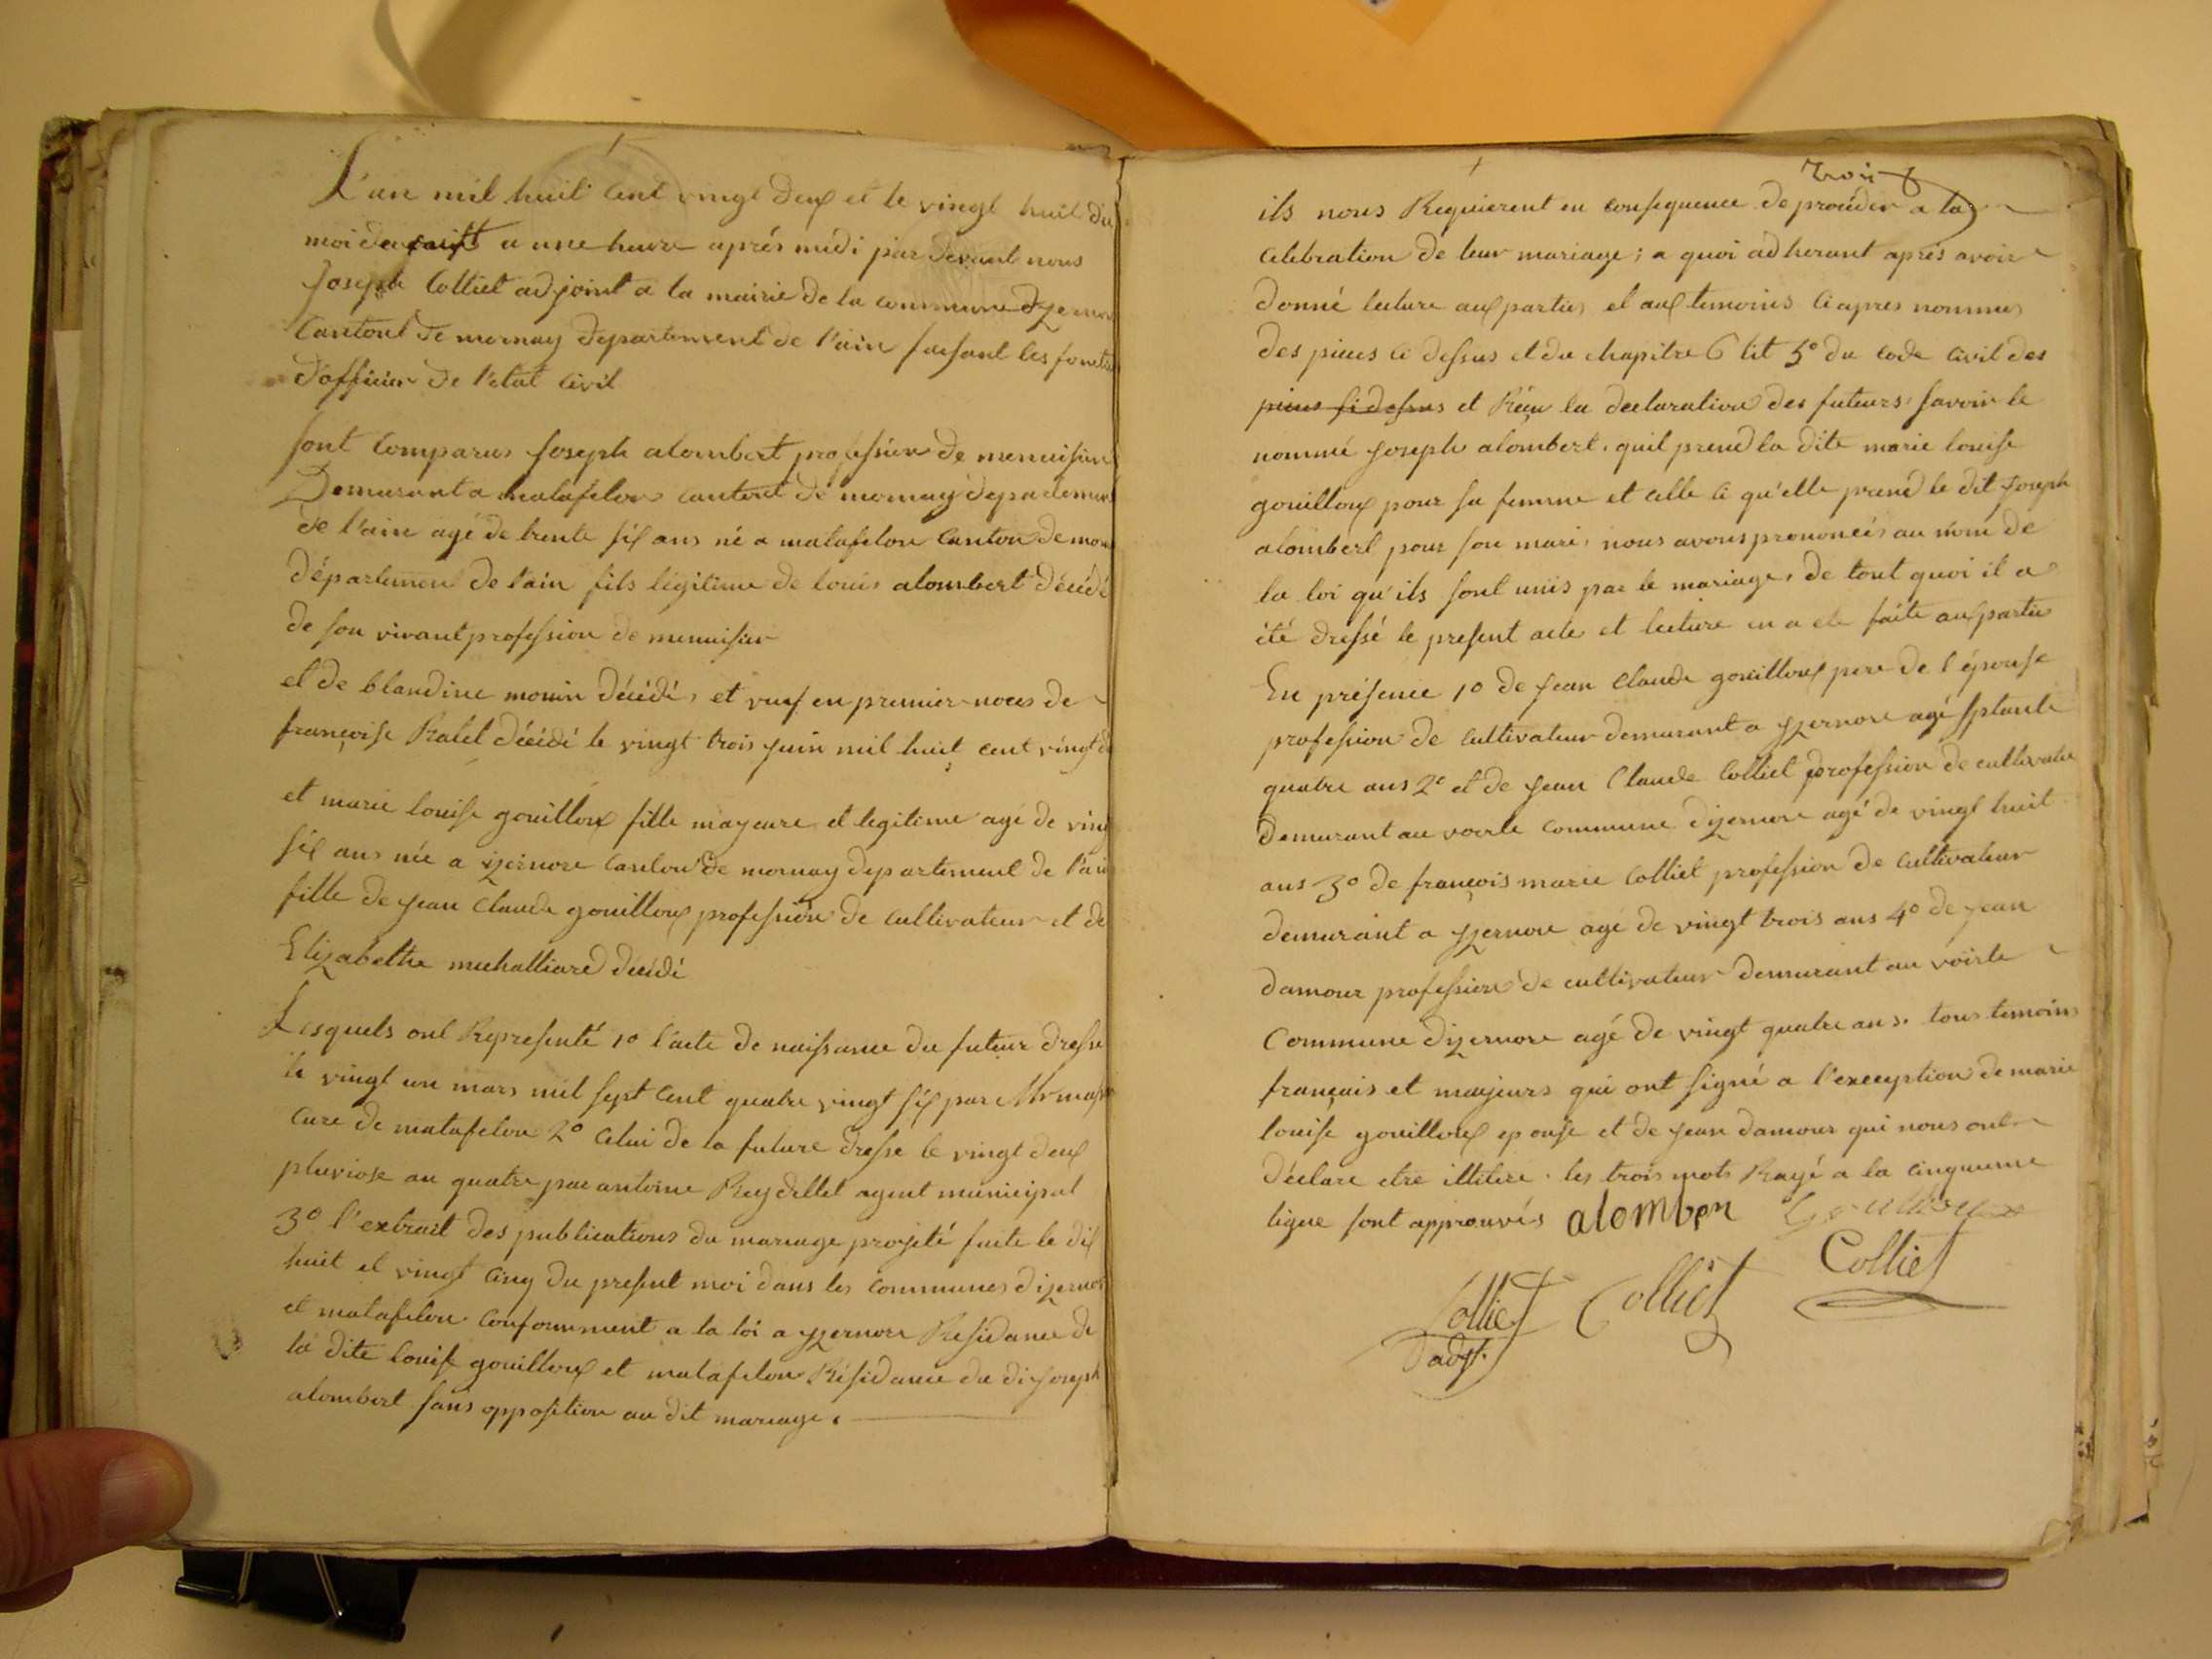 L'an mil huit cent vingt deux et le vingt huit du
moi de aoust a une heure aprés midi par devant nous
Joseph Colliet adjoint a la mairie de la commune dyzernor
Cantont de mornay departement de l'ain faisant les fonctio
d'officier de l'etat civil
sont comparus Joseph alombert profession de menuisier
Demurant a matafelon cantont de mornay departemen
de l'ain agé de trente six ans né a matafelon canton de mor
département de l'ain fils légitime de louis alombert décédé
de son vivant profession de menuisier
et de blandine monin décédé, et veuf en premier noces de
françoise Ratel décédé le vingt trois juin mil huit cent vingt d
et marie louise gouilloux fille mayeure et legitime agé de ving
six ans née a izernore canton de mornay departement de l'ain
fille de jean claude gouilloux profession de cultivateur et de
Elizabethe muhalliard décédé
Lesquels ont Representé 1º l'acte de naissance du futeur dresse
le vingt un mars mil sept cent quatre vingt six par Mr
cure de matafelon 2º celui de la future dresse le vingt deux
pluviose an quatre par antoine Reydellet agent municipal
3º l'extrait des publications du mariage projeté faite le dix
huit et vingt cinq du present moi dans les communes dizernor
et matafelon conformement a la loi a yzernore Residance de
la dite louise gouilloux et matafelon Résidance du di joseph
alombert sans opposition au dit mariage.
trois
ils nous Requierent en consequence de procéder a la
celebration de leur mariage; a quoi adherant aprés avoir
donné lecture aux parties et aux temoins ci apres nommes
des pieces ci dessus et du chapitre 6 tit 5º du code civil des
pieces si dessus et Réçu la declaration des futeurs, savoir le
nommé joseph alombert, quil prend la dite marie louise
gouilloux pour sa femme et celle ci qu'elle prend le dit joseph
alombert pour son mari, nous avons prononcés au nom de
la loi qu'ils sont uniis par le mariage, de tout quoi il a
été dressé le present acte et lecture en a ete faite aux partie
En présence 1º de jean claude gouilloux pere de l'épouse
profession de cultivateur demurant a yzernore agé sptante
quatre ans 2º et de jean Claude Colliet profession de cultivateu
demurant au voerle commune dizernore agé de vingt huit
ans 3º de françois marie colliet profession de cultivateur
demurant a yzernore agé de vingt trois ans 4º de jean
damour profession de cultivateur demurant au voirle
Commune dizernore agé de vingt quatre ans. tous temoins
français et majeurs qui ont signé a l'exception de marie
louise gouilloux epouse et de jean damour qui nous ont
déclare etre illitere. les trois mots Rayé a la cinquieme
ligne sont approuvés alomben Gouilloux
Colliet Colliet Colliet
adjt.